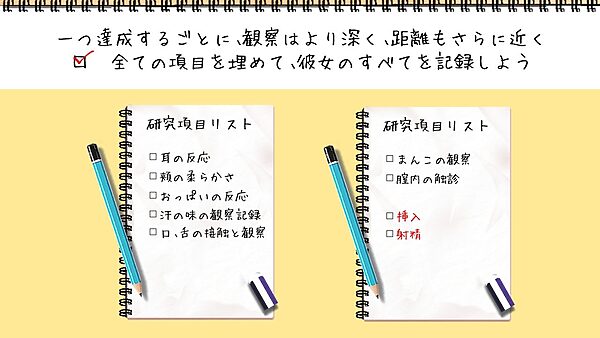 一つ達成するごとに、観察はより深く、距離もさらに近く
☑ 全ての項目を埋めて、彼女のすべてを記録しよう
研究項目リスト
□ 耳の反応
□ 頬の柔らかさ
□ おっぱいの反応
□ 汗の味の観察記録
□ 口、舌の接触と観察
研究項目リスト
□ まんこの観察
□ 膣内の触診
□ 挿入
□ 射精